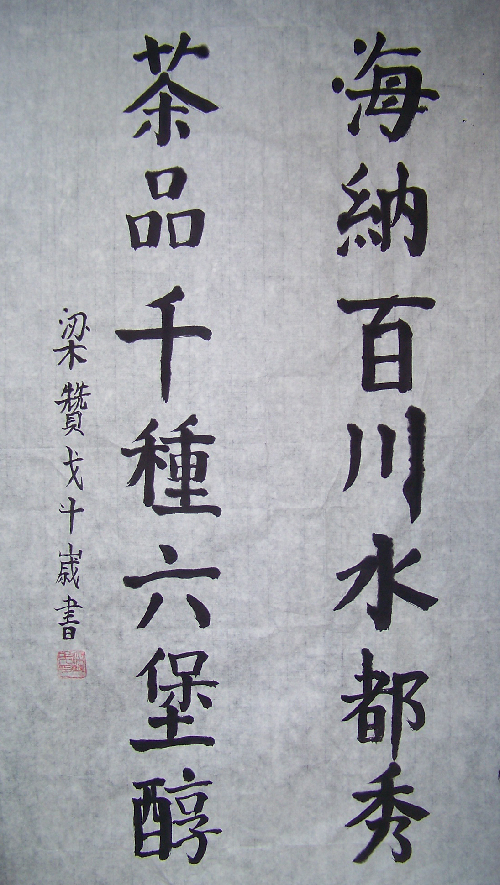 海納百川水都秀
茶品千種六堡醇
梁贊戈十歲書